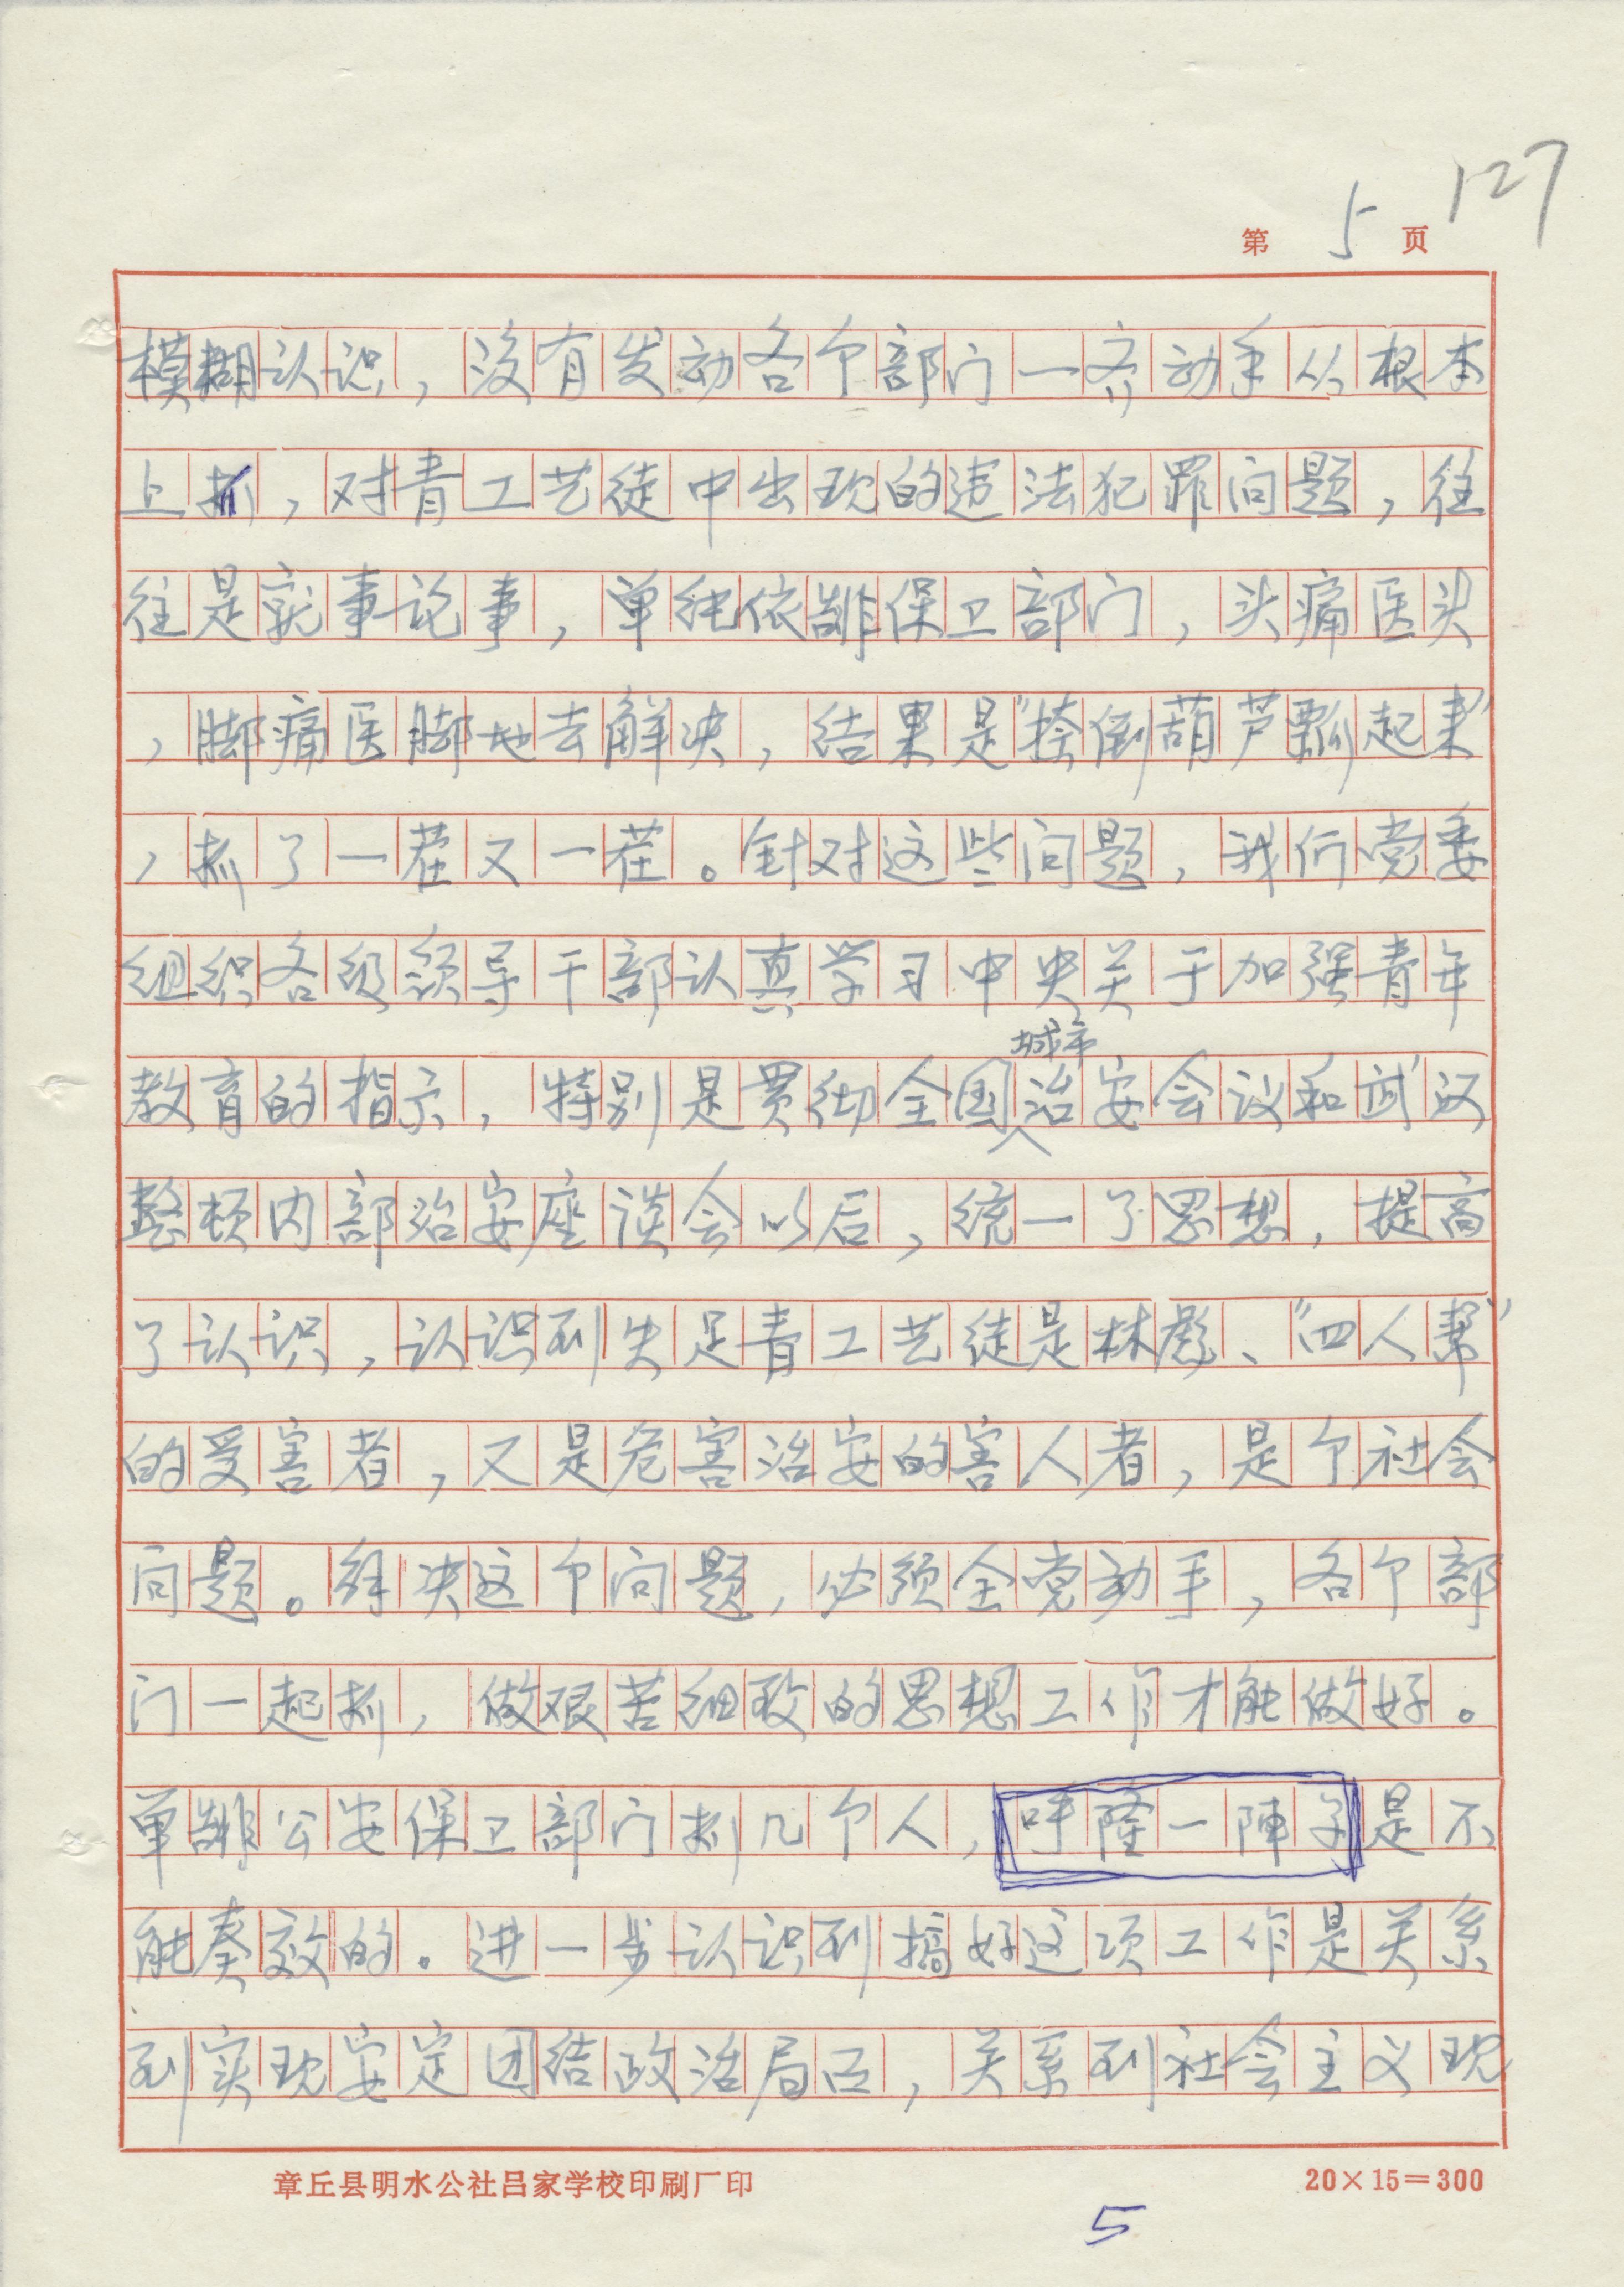 127
第 5 页
模糊认识，没有发动各个部门一齐动手从根本
上抓，对青工艺徒中出现的违法犯罪问题，往
往是就事论事，单纯依靠保卫部门，头痛医头
，脚痛医脚地去解决，结果是“捺倒葫芦瓢起来”
，抓了一茬又一茬。针对这些问题，我们党委
组织各级领导干部认真学习中央关于加强青年
城市
教育的指示，特别是贯彻全国治安会议和武汉
整顿内部治安座谈会以后，统一了思想，提高
了认识，认识到失足青工艺徒是林彪、“四人帮”
的受害者，又是危害治安的害人者，是个社会
问题。解决这个问题，必须全党动手，各个部
门一起抓，做艰苦细致的思想工作才能做好。
单靠公安保卫部门抓几个人，呼隆一阵子是不
能奏效的。进一步认识到搞好这项工作是关系
到实现安定团结政治局面，关系到社会主义现
章丘县明水公社吕家学校印刷厂印 20×15=300
5